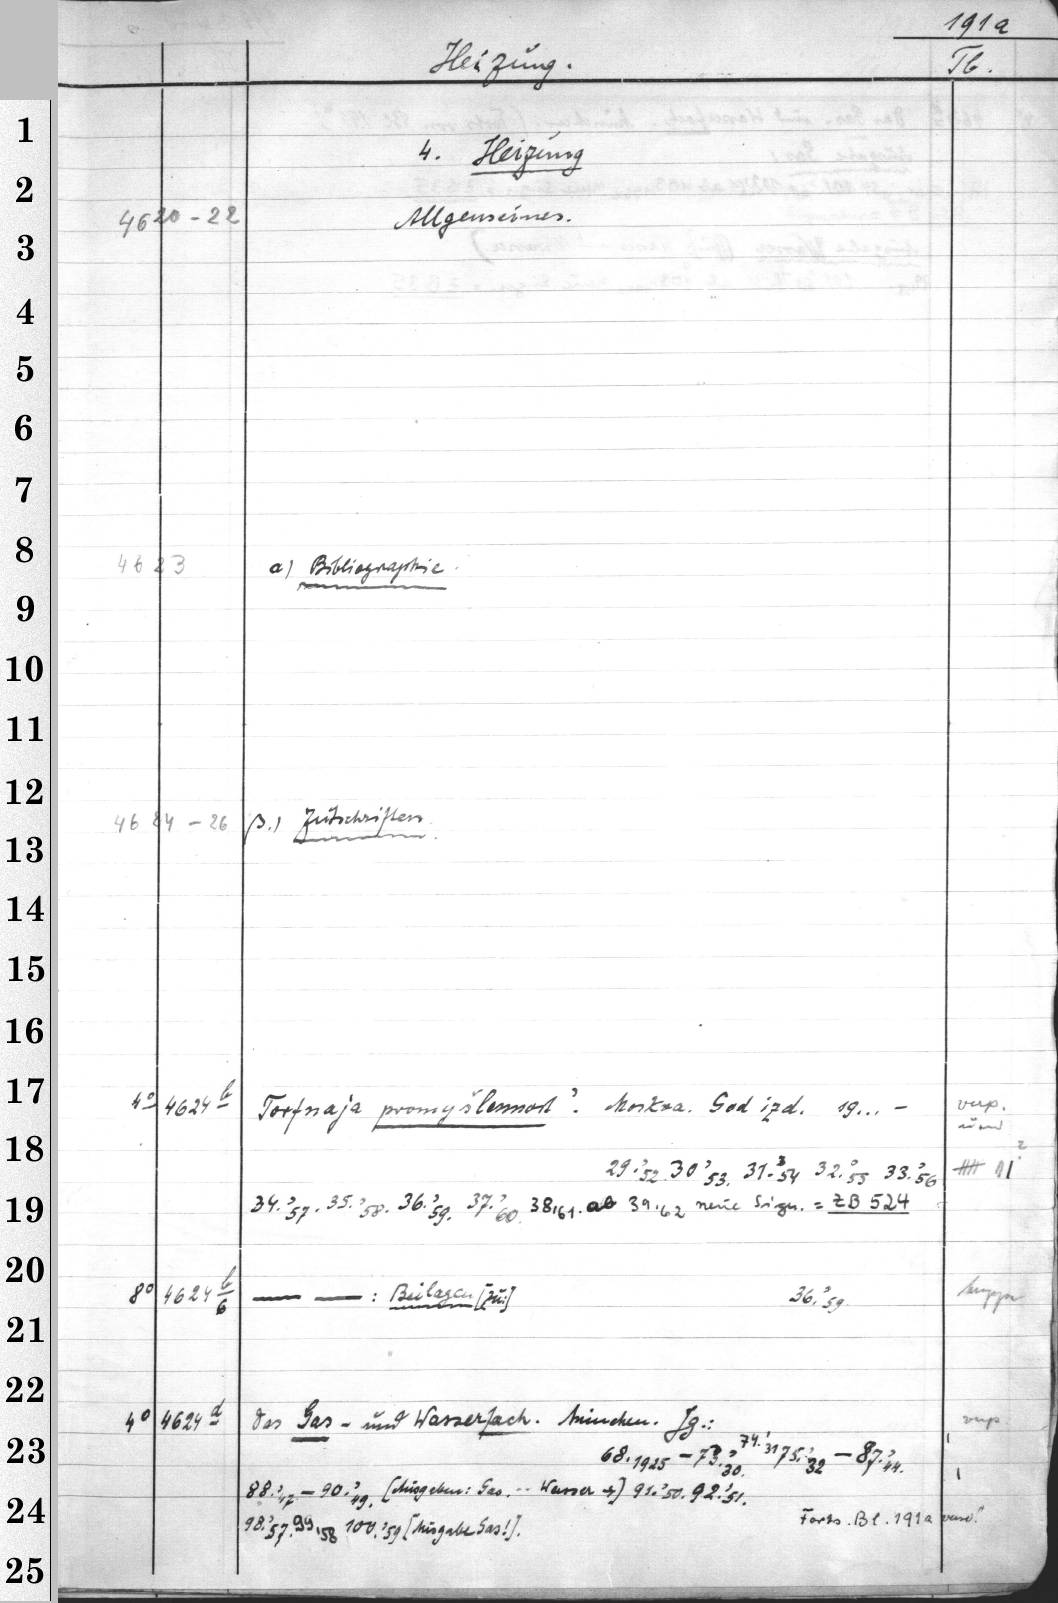 191a
Heizung. Tb.
1
4. Heizung
2
4620-22 Allgemeines.
3
4
5
6
7
8
4623 a) Bibliographie.
9
10
11
12
4624-26 β.) Zeitschriften.
13
14
15
16
17
4° 4624 b Torfnaja promyšlennost'. Moskva. God izd. 19... -
18
29.'52. 30.'53. 31.'54 32.'55 33.'56
19
34.'57. 35.'58. 36.'59. 37.'60. 38,'61. ab 39,'62 neue Sign. = ZB 524
20
8° 4624 b/6 — — : Beilagen [zu:] 36.'59.
21
22
4° 4624 d Das Gas- und Wasserfach. München. Jg.:
23
68.1925 - 73.'30. 74.'31 75.'32 - 87.'44.
88.'47 - 90.'49. [Ausgaben: Gas. -- Wasser →] 91.'50. 92.'51.
24
98.'57. 99,'58 100.'59 [Ausgabe Gas!]. Forts. Bl. 191a
25